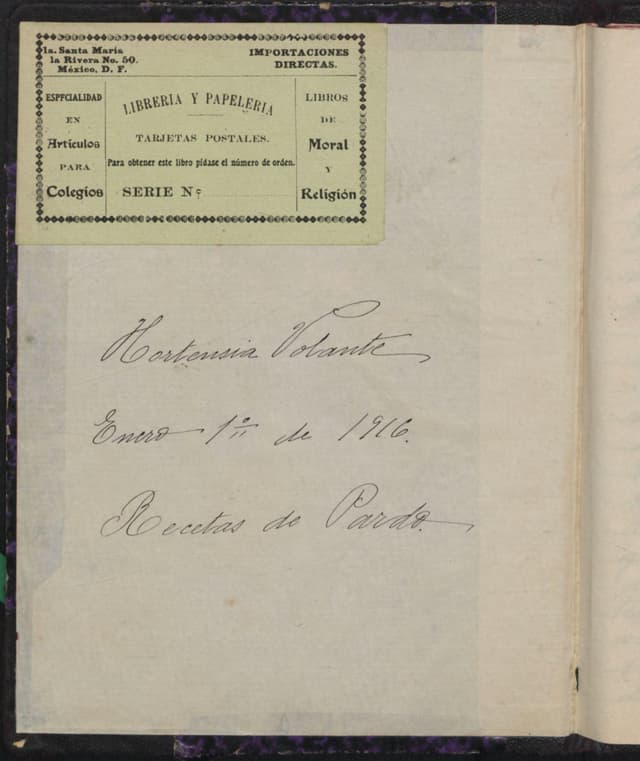 1a. Santa Maria
la Rivera No. 50.
México, D. F.
IMPORTACIONES
DIRECTAS.
ESPECIALIDAD
EN
Artículos
PARA
Colegios
LIBRERIA Y PAPELERIA
TARJETAS POSTALES.
Para obtener este libro pídase el número de orden.
SERIE No
LIBROS
DE
Moral
Y
Religión
Hortensia Volante
Enero 1o de 1916.
Recetas de Pardo.